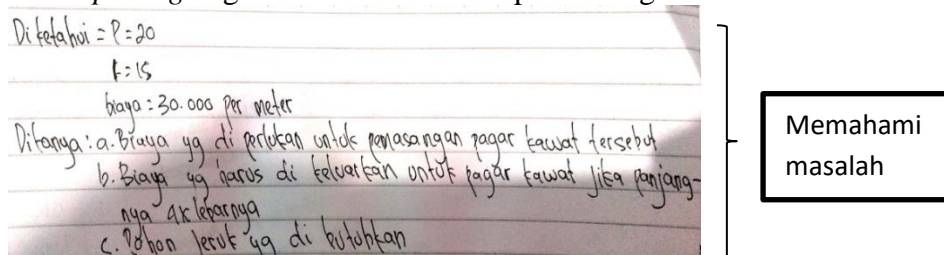 Diketahui = P = 20
l = 15
biaya = 30.000 per meter
Ditanya : a. Biaya yg di perlukan untuk pemasangan pagar kawat tersebut
b. Biaya yg harus di keluarkan untuk pagar kawat jika panjang-
nya 4x lebarnya
c. Pohon jeruk yg di butuhkan
Memahami
masalah